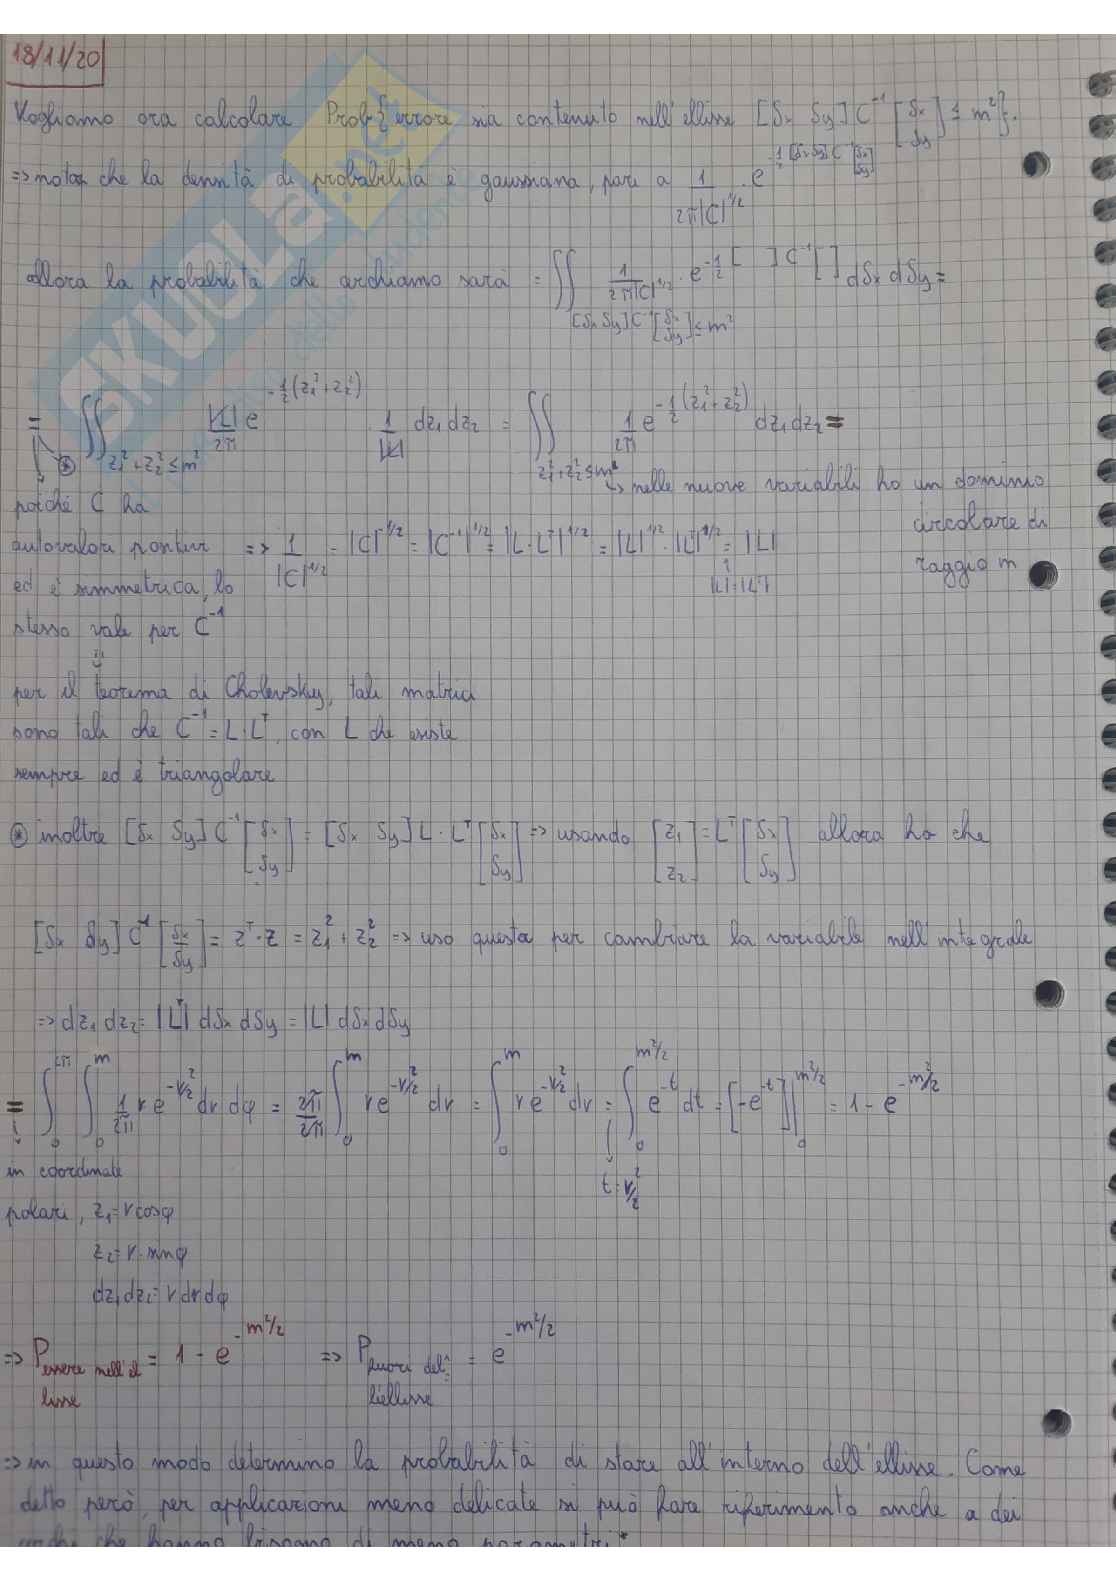 18/11/20
Vogliamo ora calcolare Prob{errore sia contenuto nell'ellisse [δx δy] C⁻¹ [δx δy] ≤ m²}.
=> nota che la densità di probabilità è gaussiana, pari a 1/(2π|C|^1/2) · e^(-1/2 [δx δy] C⁻¹ [δx δy])
allora la probabilità che cerchiamo sarà = ∬_([δx δy] C⁻¹ [δx δy] ≤ m²) 1/(2π|C|^1/2) · e^(-1/2 [ ] C⁻¹ [ ]) dδx dδy =
= ∬_(z₁²+z₂² ≤ m²) |L|/2π e^(-1/2 (z₁²+z₂²)) 1/|L| dz₁ dz₂ = ∬_(z₁²+z₂² ≤ m²) 1/2π e^(-1/2 (z₁²+z₂²)) dz₁ dz₂ =
↳ nelle nuove variabili ho un dominio
circolare di
raggio m
poiché C ha
autovalori positivi => 1/|C|^1/2 = |C|^-1/2 = |C⁻¹|^1/2 = |L·Lᵀ|^1/2 = |L|^1/2 · |Lᵀ|^1/2 = |L|
|L|=|Lᵀ|
ed è simmetrica, lo
stesso vale per C⁻¹
per il teorema di Cholevsky, tali matrici
sono tali che C⁻¹ = L·Lᵀ, con L che esiste
sempre ed è triangolare
⊛ inoltre [δx δy] C⁻¹ [δx δy] = [δx δy] L · Lᵀ [δx δy] => usando [z₁ z₂] = Lᵀ [δx δy] allora ho che
[δx δy] C⁻¹ [δx δy] = zᵀ·z = z₁² + z₂² => uso questa per cambiare la variabile nell'integrale
=> dz₁ dz₂ = |Lᵀ| dδx dδy = |L| dδx dδy
= ∫₀^2π ∫₀^m 1/2π r e^(-r²/2) dr dφ = 2π/2π ∫₀^m r e^(-r²/2) dr = ∫₀^m r e^(-r²/2) dr = ∫₀^(m²/2) e^-t dt = [-e^-t]|₀^(m²/2) = 1 - e^(-m²/2)
t = r²/2
in coordinate
polari, z₁ = r cosφ
z₂ = r · sinφ
dz₁ dz₂ = r dr dφ
=> P essere nell'el
lisse = 1 - e^(-m²/2) => P fuori del
l'ellisse = e^(-m²/2)
=> in questo modo determino la probabilità di stare all'interno dell'ellisse. Come
detto però, per applicazioni meno delicate si può fare riferimento anche a dei
cerchi che hanno bisogno di meno parametri*
SKUOLA.net